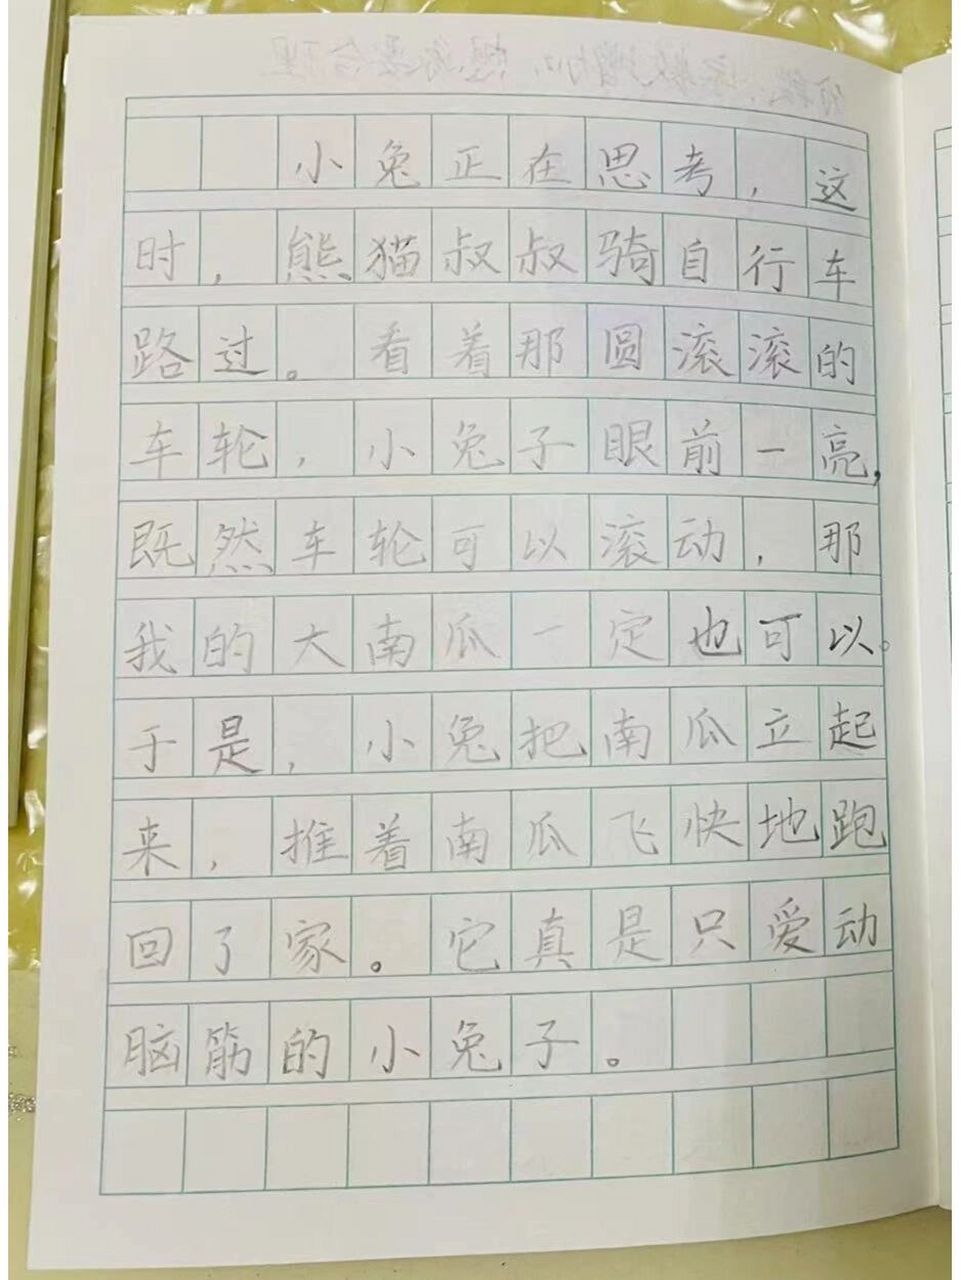 小兔正在思考，这
时，熊猫叔叔骑自行车
路过。看着那圆滚滚的
车轮，小兔子眼前一亮，
既然车轮可以滚动，那
我的大南瓜一定也可以。
于是，小兔把南瓜立起
来，推着南瓜飞快地跑
回了家。它真是只爱动
脑筋的小兔子。